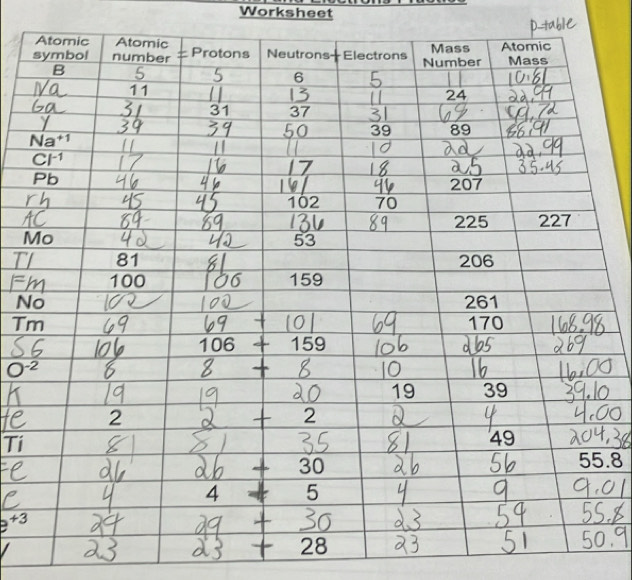 Worksheet
P-table
Atomic symbol Atomic number = Protons Neutrons + Electrons Mass Number Atomic Mass
B 5 5 6 5 11 10.81
Na 11 11 13 11 24 22.99
Ga 31 31 37 31 68 69.72
Y 39 39 50 39 89 88.91
Na+1 11 11 11 10 22 22.99
Cl-1 17 16 17 18 25 35.45
Pb 46 46 161 46 207
rh 45 45 102 70
AC 89 89 136 89 225 227
Mo 42 42 53
Tl 81 81 206
Fm 100 100 159
No 102 102 261
Tm 69 69 + 101 69 170 168.98
SG 106 106 + 159 106 265 269
O-2 8 8 + 8 10 16 16.00
K 19 19 20 19 39 39.10
te 2 2 + 2 2 4 4.00
Ti 81 81 35 81 49 204.38
Fe 26 26 + 30 26 56 55.8
e 4 4 + 5 4 9 9.01
e+3 29 29 + 30 23 59 55.8
23 23 + 28 23 51 50.9